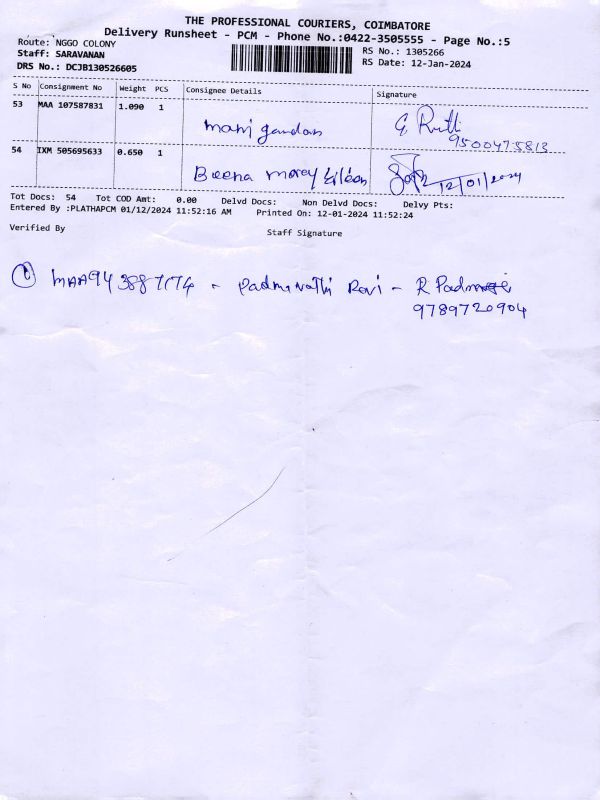 THE PROFESSIONAL COURIERS, COIMBATORE
Delivery Runsheet - PCM - Phone No.:0422-3505555 - Page No.:5
Route: NGGO COLONY
RS No.: 1305266
Staff: SARAVANAN
RS Date: 12-Jan-2024
DRS No.: DCJB130526605
S No Consignment No Weight PCS Consignee Details Signature
53 MAA 107587831 1.090 1 manigandan
9500475813
54 IXM 505695633 0.650 1 Beena
12/01/2024
Tot Docs: 54 Tot COD Amt: 0.00 Delvd Docs: Non Delvd Docs: Delvy Pts:
Entered By :PLATHAPCM 01/12/2024 11:52:16 AM Printed On: 12-01-2024 11:52:24
Verified By Staff Signature
Padmavathi Ravi - R
9789720904